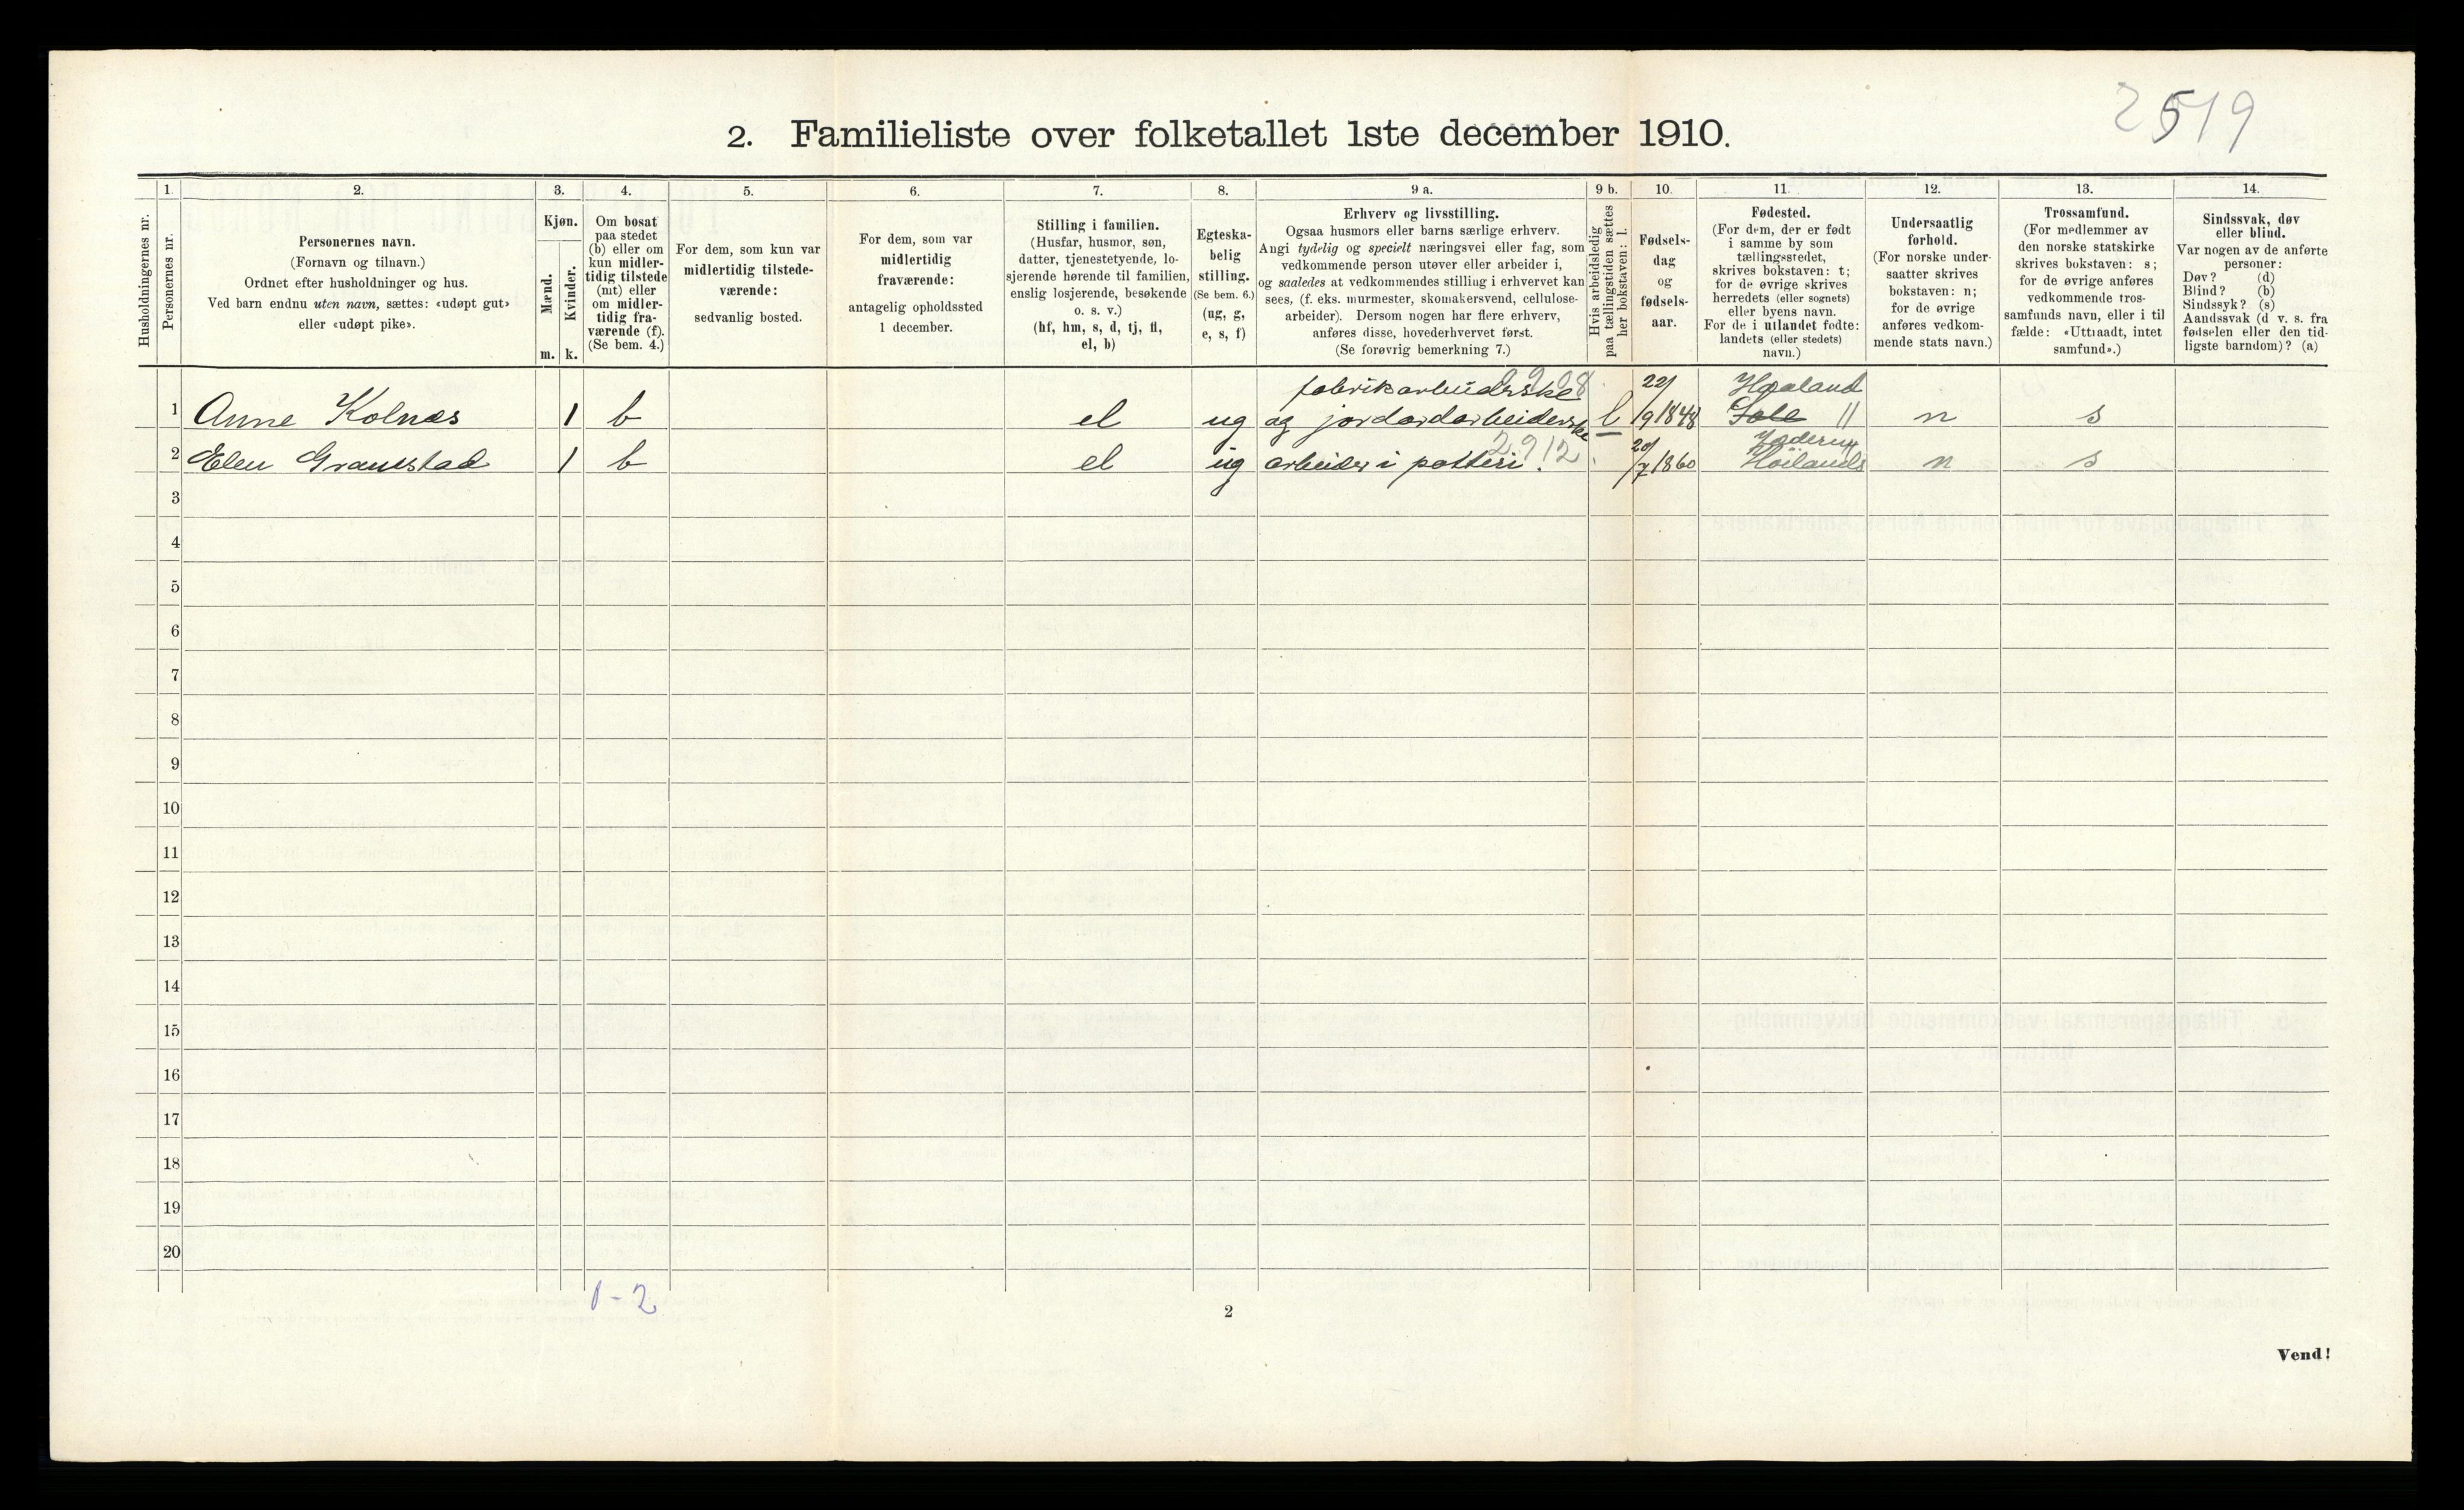 2519
2. Familieliste over folketallet 1ste december 1910.
1. 2. 3. 4. 5. 6. 7. 8. 9 a. 9 b. 10. 11. 12. 13. 14.
Husholdningernes nr.
Personernes nr.
Personernes navn.
(Fornavn og tilnavn.)
Ordnet efter husholdninger og hus.
Ved barn endnu uten navn, sættes: «udøpt gut»
eller «udøpt pike».
Kjøn.
Mænd.
Kvinder.
m. k.
Om bosat
paa stedet
(b) eller om
kun midler-
tidig tilstede
(mt) eller
om midler-
tidig fra-
værende (f).
(Se bem. 4.)
For dem, som kun var
midlertidig tilstede-
værende:
sedvanlig bosted.
For dem, som var
midlertidig
fraværende:
antagelig opholdssted
1 december.
Stilling i familien.
(Husfar, husmor, søn,
datter, tjenestetyende, lo-
sjerende hørende til familien,
enslig losjerende, besøkende
o. s. v.)
(hf, hm, s, d, tj, fl,
el, b)
Egteska-
belig
stilling.
(Se bem. 6.)
(ug, g,
e, s, f)
Erhverv og livsstilling.
Ogsaa husmors eller barns særlige erhverv.
Angi tydelig og specielt næringsvei eller fag, som
vedkommende person utøver eller arbeider i,
og saaledes at vedkommendes stilling i erhvervet kan
sees, (f. eks. murmester, skomakersvend, cellulose-
arbeider). Dersom nogen har flere erhverv,
anføres disse, hovederhvervet først.
(Se forøvrig bemerkning 7.)
Hvis arbeidsledig
paa tællingstiden sættes
her bokstaven: l.
Fødsels-
dag
og
fødsels-
aar.
Fødested.
(For dem, der er født
i samme by som
tællingsstedet,
skrives bokstaven: t;
for de øvrige skrives
herredets (eller sognets)
eller byens navn.
For de i utlandet fødte:
landets (eller stedets)
navn.)
Undersaatlig
forhold.
(For norske under-
saatter skrives
bokstaven: n;
for de øvrige
anføres vedkom-
mende stats navn.)
Trossamfund.
(For medlemmer av
den norske statskirke
skrives bokstaven: s;
for de øvrige anføres
vedkommende tros-
samfunds navn, eller i til
fælde: «Uttraadt, intet
samfund».)
Sindssvak, døv
eller blind.
Var nogen av de anførte
personer:
Døv? (d)
Blind? (b)
Sindssyk? (s)
Aandssvak (d v. s. fra
fødselen eller den tid-
ligste barndom)? (a)
fabrikarbeiderske 22/ Haaland
1 Anne Kolnes 1 b el ug og jordardarbeiderske l /9 1848 Sole 11 n s
2912 20/
2 Elen Grannstad 1 b el ug arbeider i potteri. /7 1860 Höilands n s
3
4
5
6
7
8
9
10
11
12
13
14
15
16
17
18
19
20
1-2
2
Vend!